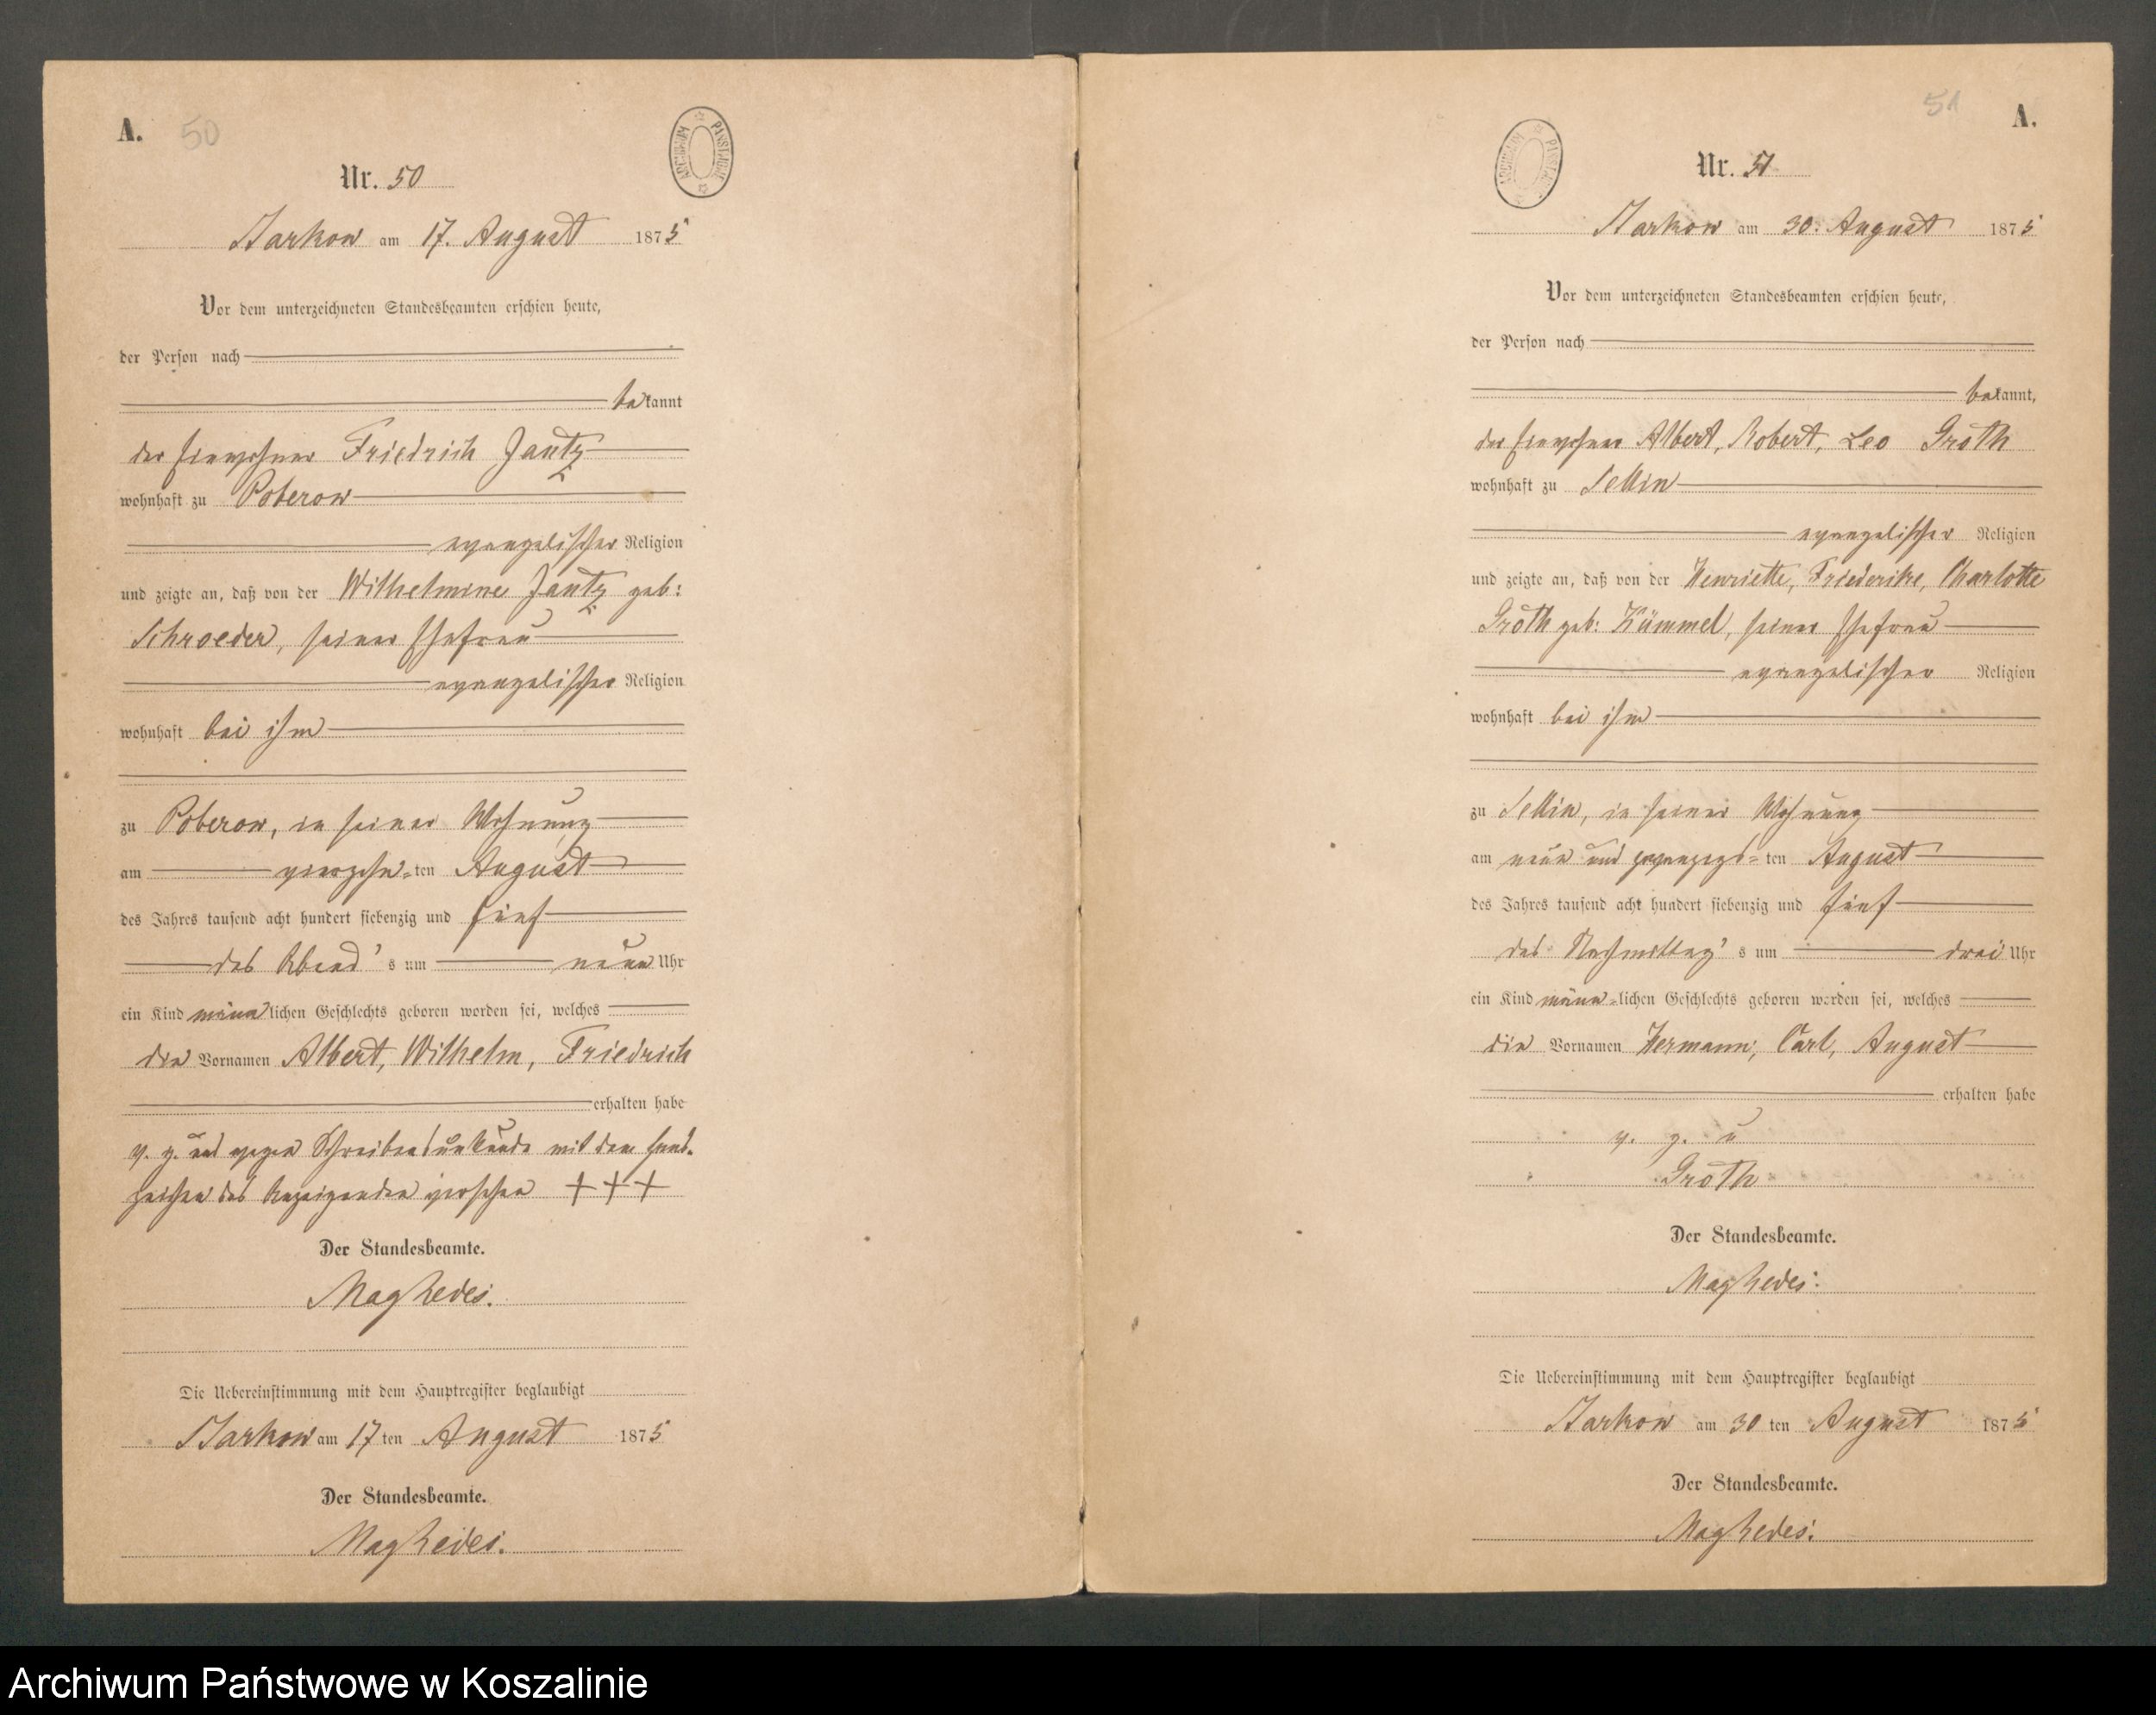 A. 50
ARCHIWUM PAŃSTWOWE
Nr. 50
Starkow am 17. August 1875
Vor dem unterzeichneten Standesbeamten erschien heute,
der Person nach
bekannt
der Einwohner Friedrich Jantz
wohnhaft zu Poberow
evangelischer Religion
und zeigte an, daß von der Wilhelmine Jantz geb:
Schroeder, seiner Ehefrau
evangelischer Religion
wohnhaft bei ihm
zu Poberow, in seiner Wohnung
am vierzehn-ten August
des Jahres tausend acht hundert siebenzig und fünf
des Abend's um neun Uhr
ein Kind männlichen Geschlechts geboren worden sei, welches
die Vornamen Albert, Wilhelm, Friedrich
erhalten habe
v. g. und wegen Schreibensunkunde mit dem Hand-
zeichen des Anzeigenden versehen +++
Der Standesbeamte.
Die Uebereinstimmung mit dem Hauptregister beglaubigt
Starkow am 17ten August 1875
Der Standesbeamte.
51 A.
ARCHIWUM PAŃSTWOWE
Nr. 51
Starkow am 30. August 1875
Vor dem unterzeichneten Standesbeamten erschien heute,
der Person nach
bekannt,
der Einwohner Albert, Robert, Leo Groth
wohnhaft zu Sellin
evangelischer Religion
und zeigte an, daß von der Henriette, Friederike, Charlotte
Groth geb: Kümmel, seiner Ehefrau
evangelischer Religion
wohnhaft bei ihm
zu Sellin, in seiner Wohnung
am neun und zwanzigs-ten August
des Jahres tausend acht hundert siebenzig und fünf
des Nachmittag's um drei Uhr
ein Kind männ-lichen Geschlechts geboren worden sei, welches
die Vornamen Hermann, Carl, August
erhalten habe
v. g. u
Groth
Der Standesbeamte.
Die Uebereinstimmung mit dem Hauptregister beglaubigt
Starkow am 30 ten August 1875
Der Standesbeamte.
Archiwum Państwowe w Koszalinie